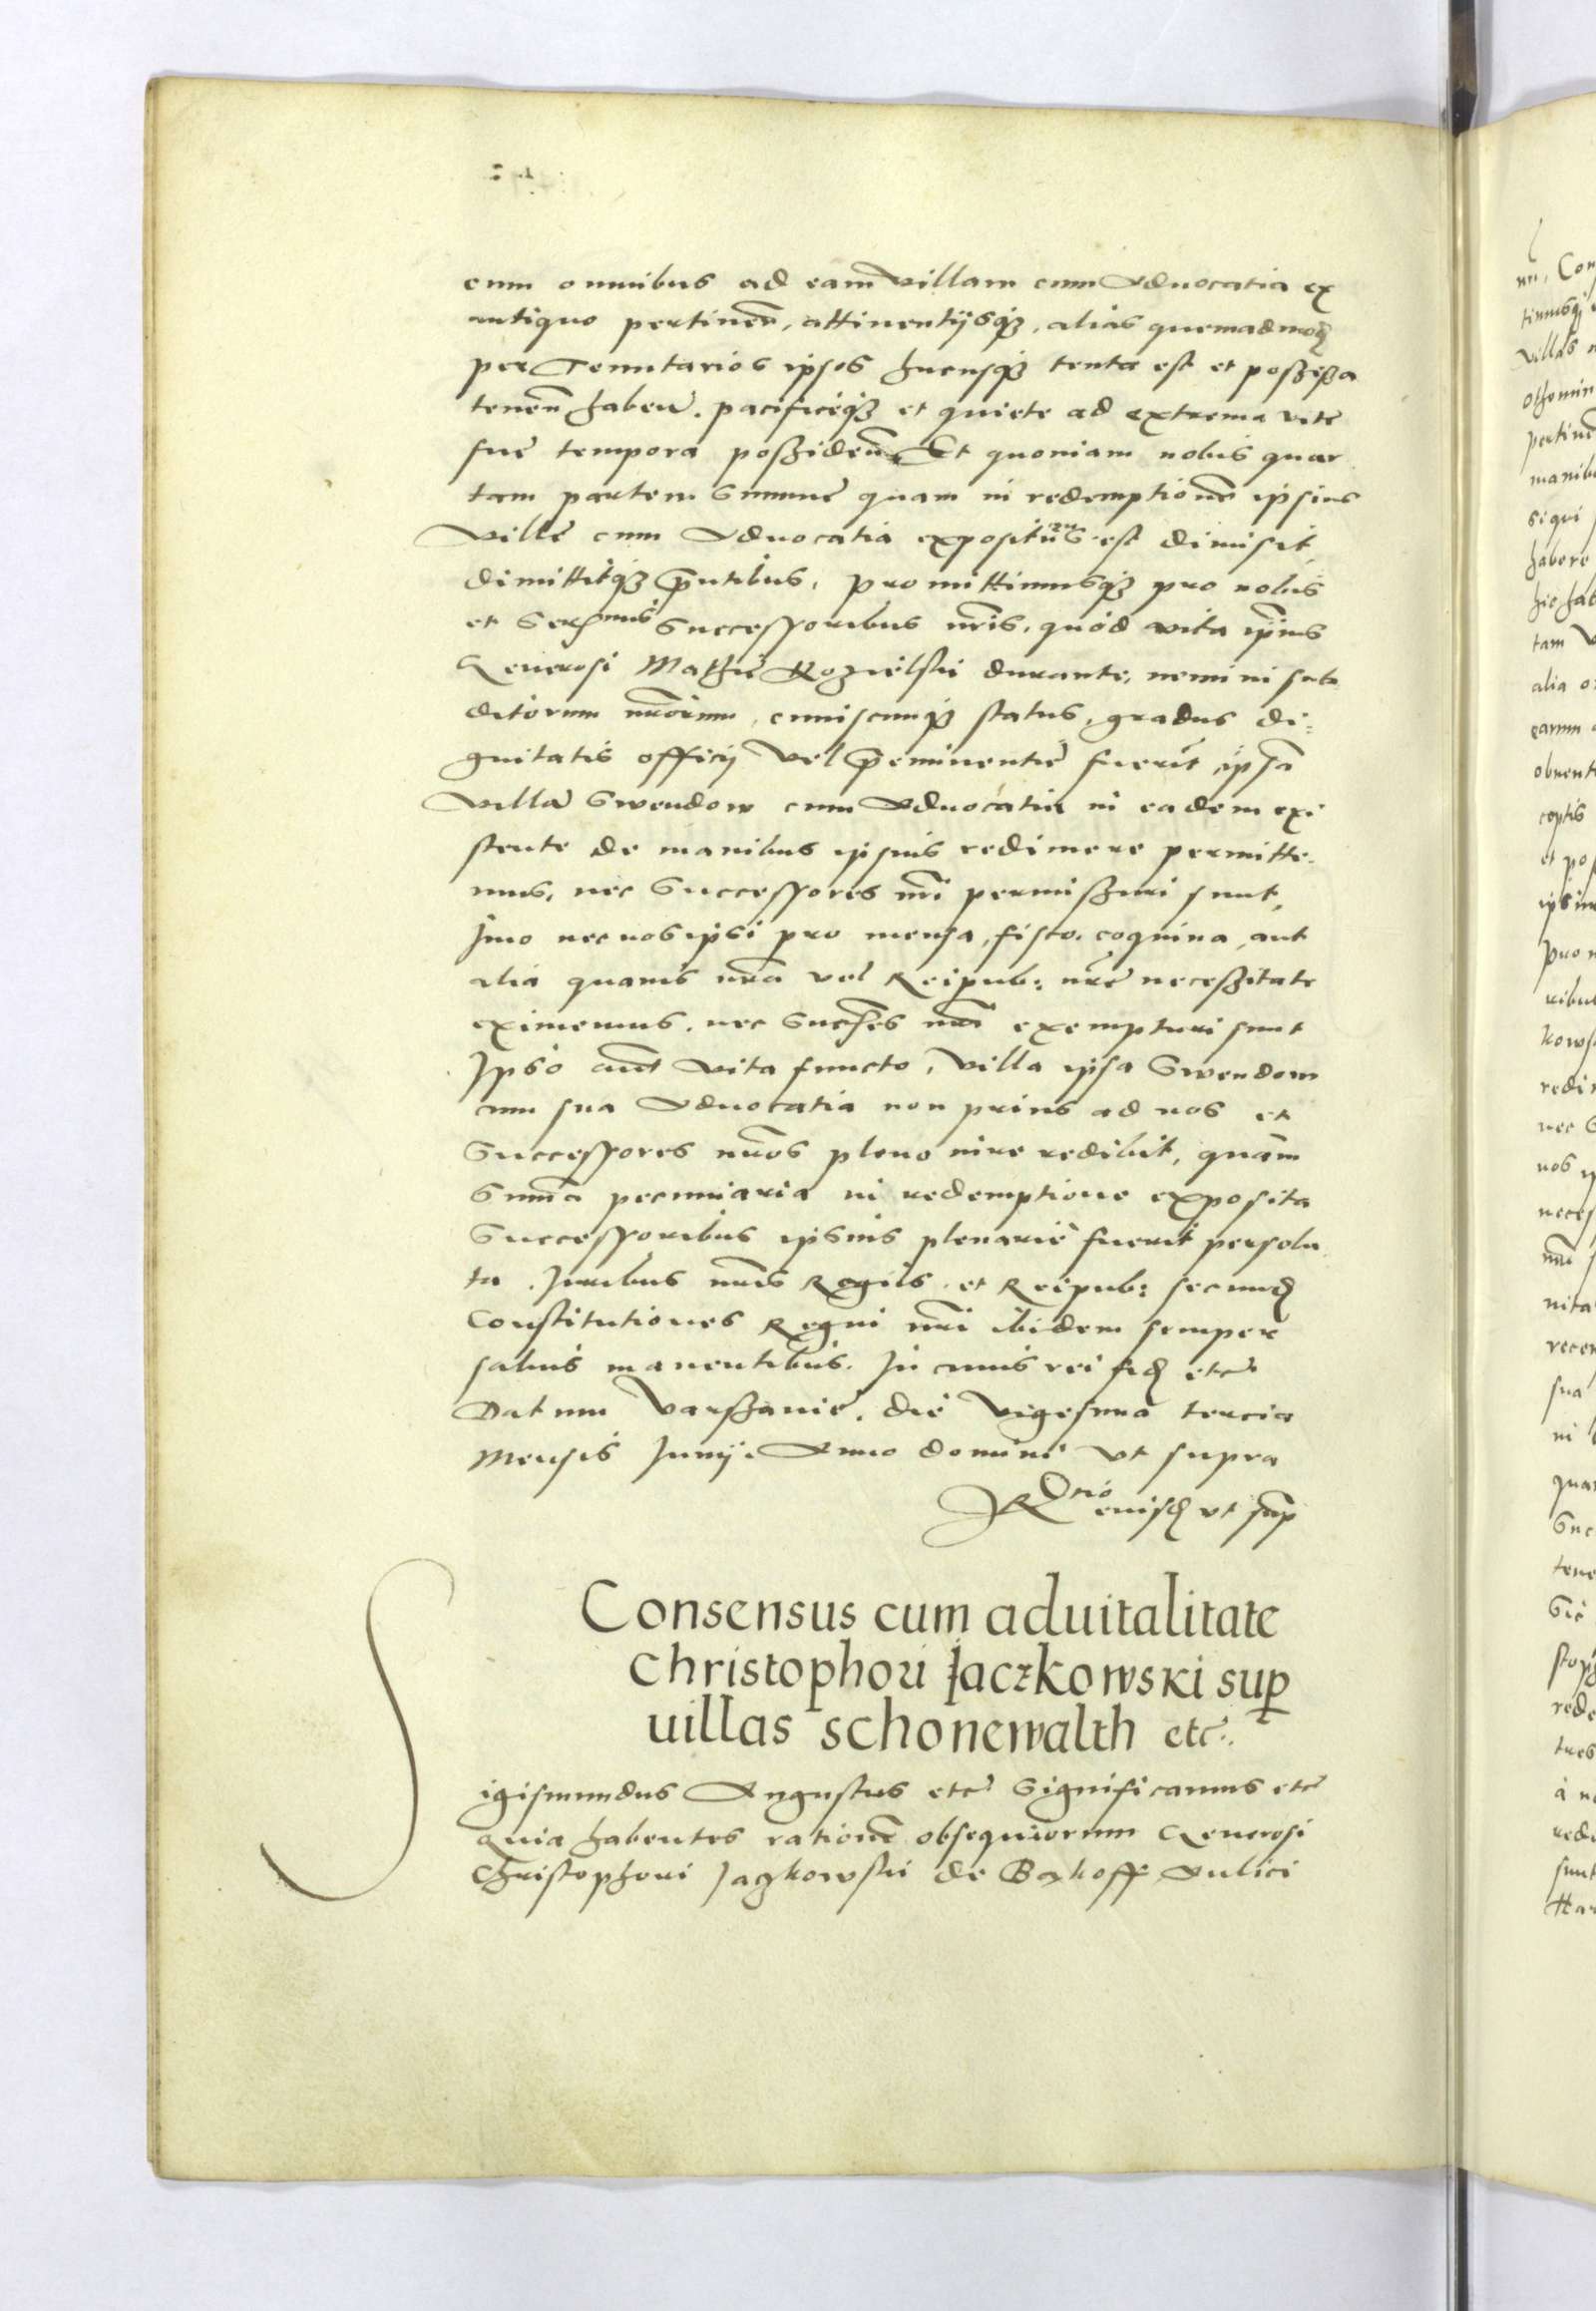 cum omnibus ad eam villam cum Aduocatia ex
antiquo pertinen̄, attinentijsq3, alias quemadmod
per Tenutarios ipsos hucusq3 tenta est et posßeßa
tenen̄ haben̄. pacificeq3 et quiete ad extrema vite
sue tempora posßiden̄. Et quoniam nobis quar
tam partem Summe quam in redemptionē ipsius
Ville cum Aduocatia expositurus est dimisit
dimittitq3 p̄ntibus, promittimusq3 pro nobis
et Sermis Successoribus nr̄is, quod vita ip̄ius
Generosi Mathie Kozielski durante, nemini sub
ditorum nr̄orum, cuiuscunq3 status, gradus di=
gnitatis officij Vel p̄eminentie fuerit, ipsā
Villā Swendow cum Aduocatia in eadem exi
stente de manibus ipsius redimere permitte=
mus, nec Successores nr̄i permisßuri sunt,
Imo nec nos ipsi pro mensa, fisco, coquina, aut
alia quauis nr̄a vel Reipub: nr̄e necesßitate
eximemus, nec Suc̄ses nr̄i exempturi sunt
Ipso aut̄ vita functo, Villa ipsa Swendow
cum sua Aduocatia non prius ad nos et
Successores nr̄os pleno iure redibit, quam
Sum̄a pecuniaria in redemptione exposita
Successoribus ipsius plenarie fuerit persolu
ta. Iuribus nr̄is Regiis et Reipub: secund
Constitutiones Regni nr̄i ibidem semper
saluis manentibus. In cuius rei fid etc
Datum Varsßauie, die Vigesima tercia
Mensis Junij. Anno domini Vt supra
Rtio eiusd vt sup
Consensus cum aduitalitate
Christophori Jaczkowski sup
uillas Schonewalth etc.
Sigismundus Augustus etc Significamus etc
quia habentes rationē obsequiorum Generosi
Christophori Jaczkowski de Aulici